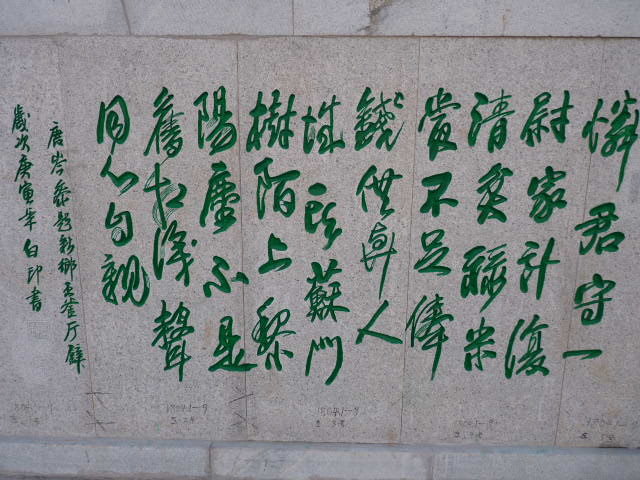 憐君守一
尉家计復
清貧禄米
嘗不足俸
錢供與人
城頭蘇门
樹陌上黎
陽塵不是
舊相識聲
同心自親
唐岑參題新鄉王釜厅壁
歲次庚寅年白印書